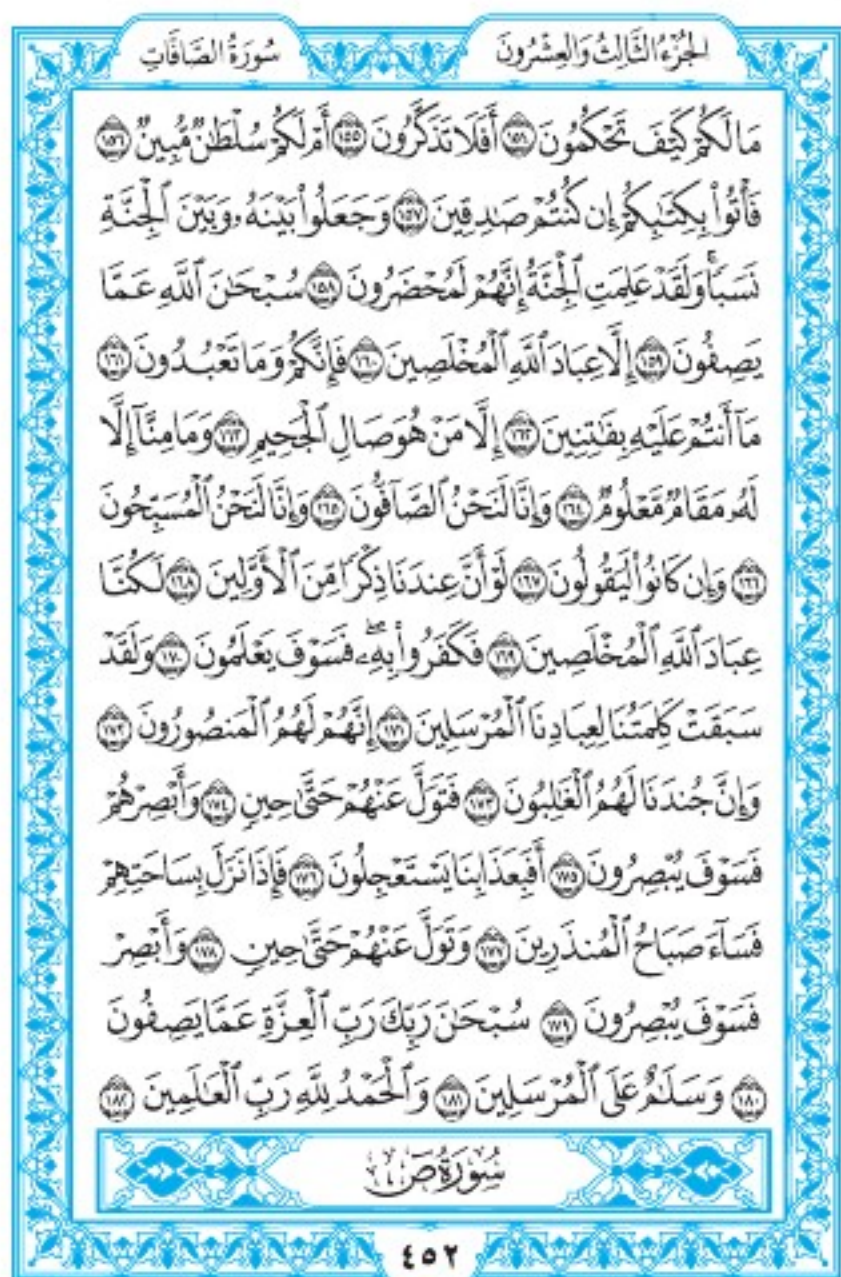 الجزء الثالث والعشرون
سورة الصافات
مَا لَكُمْ كَيْفَ تَحْكُمُونَ ١٥٤ أَفَلَا تَذَكَّرُونَ ١٥٥ أَمْ لَكُمْ سُلْطَٰنٌ مُّبِينٌ ١٥٦
فَأْتُوا۟ بِكِتَٰبِكُمْ إِن كُنتُمْ صَٰدِقِينَ ١٥٧ وَجَعَلُوا۟ بَيْنَهُۥ وَبَيْنَ ٱلْجِنَّةِ
نَسَبًاۚ وَلَقَدْ عَلِمَتِ ٱلْجِنَّةُ إِنَّهُمْ لَمُحْضَرُونَ ١٥٨ سُبْحَٰنَ ٱللَّهِ عَمَّا
يَصِفُونَ ١٥٩ إِلَّا عِبَادَ ٱللَّهِ ٱلْمُخْلَصِينَ ١٦٠ فَإِنَّكُمْ وَمَا تَعْبُدُونَ ١٦١
مَآ أَنتُمْ عَلَيْهِ بِفَٰتِنِينَ ١٦٢ إِلَّا مَنْ هُوَ صَالِ ٱلْجَحِيمِ ١٦٣ وَمَا مِنَّآ إِلَّا
لَهُۥ مَقَامٌ مَّعْلُومٌ ١٦٤ وَإِنَّا لَنَحْنُ ٱلصَّآفُّونَ ١٦٥ وَإِنَّا لَنَحْنُ ٱلْمُسَبِّحُونَ
١٦٦ وَإِن كَانُوا۟ لَيَقُولُونَ ١٦٧ لَوْ أَنَّ عِندَنَا ذِكْرًا مِّنَ ٱلْأَوَّلِينَ ١٦٨ لَكُنَّا
عِبَادَ ٱللَّهِ ٱلْمُخْلَصِينَ ١٦٩ فَكَفَرُوا۟ بِهِۦۖ فَسَوْفَ يَعْلَمُونَ ١٧٠ وَلَقَدْ
سَبَقَتْ كَلِمَتُنَا لِعِبَادِنَا ٱلْمُرْسَلِينَ ١٧١ إِنَّهُمْ لَهُمُ ٱلْمَنصُورُونَ ١٧٢
وَإِنَّ جُندَنَا لَهُمُ ٱلْغَٰلِبُونَ ١٧٣ فَتَوَلَّ عَنْهُمْ حَتَّىٰ حِينٍ ١٧٤ وَأَبْصِرْهُمْ
فَسَوْفَ يُبْصِرُونَ ١٧٥ أَفَبِعَذَابِنَا يَسْتَعْجِلُونَ ١٧٦ فَإِذَا نَزَلَ بِسَاحَتِهِمْ
فَسَآءَ صَبَاحُ ٱلْمُنذَرِينَ ١٧٧ وَتَوَلَّ عَنْهُمْ حَتَّىٰ حِينٍ ١٧٨ وَأَبْصِرْ
فَسَوْفَ يُبْصِرُونَ ١٧٩ سُبْحَٰنَ رَبِّكَ رَبِّ ٱلْعِزَّةِ عَمَّا يَصِفُونَ
١٨٠ وَسَلَٰمٌ عَلَى ٱلْمُرْسَلِينَ ١٨١ وَٱلْحَمْدُ لِلَّهِ رَبِّ ٱلْعَٰلَمِينَ ١٨٢
سُورَةُ صٓ
٤٥٢